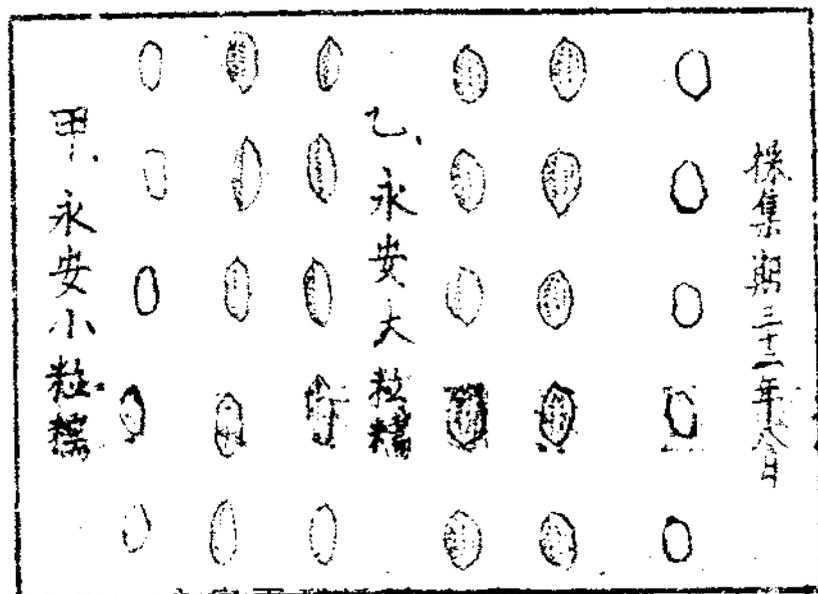 採集期三十二年八月
乙、永安大粒糯
甲、永安小粒糯